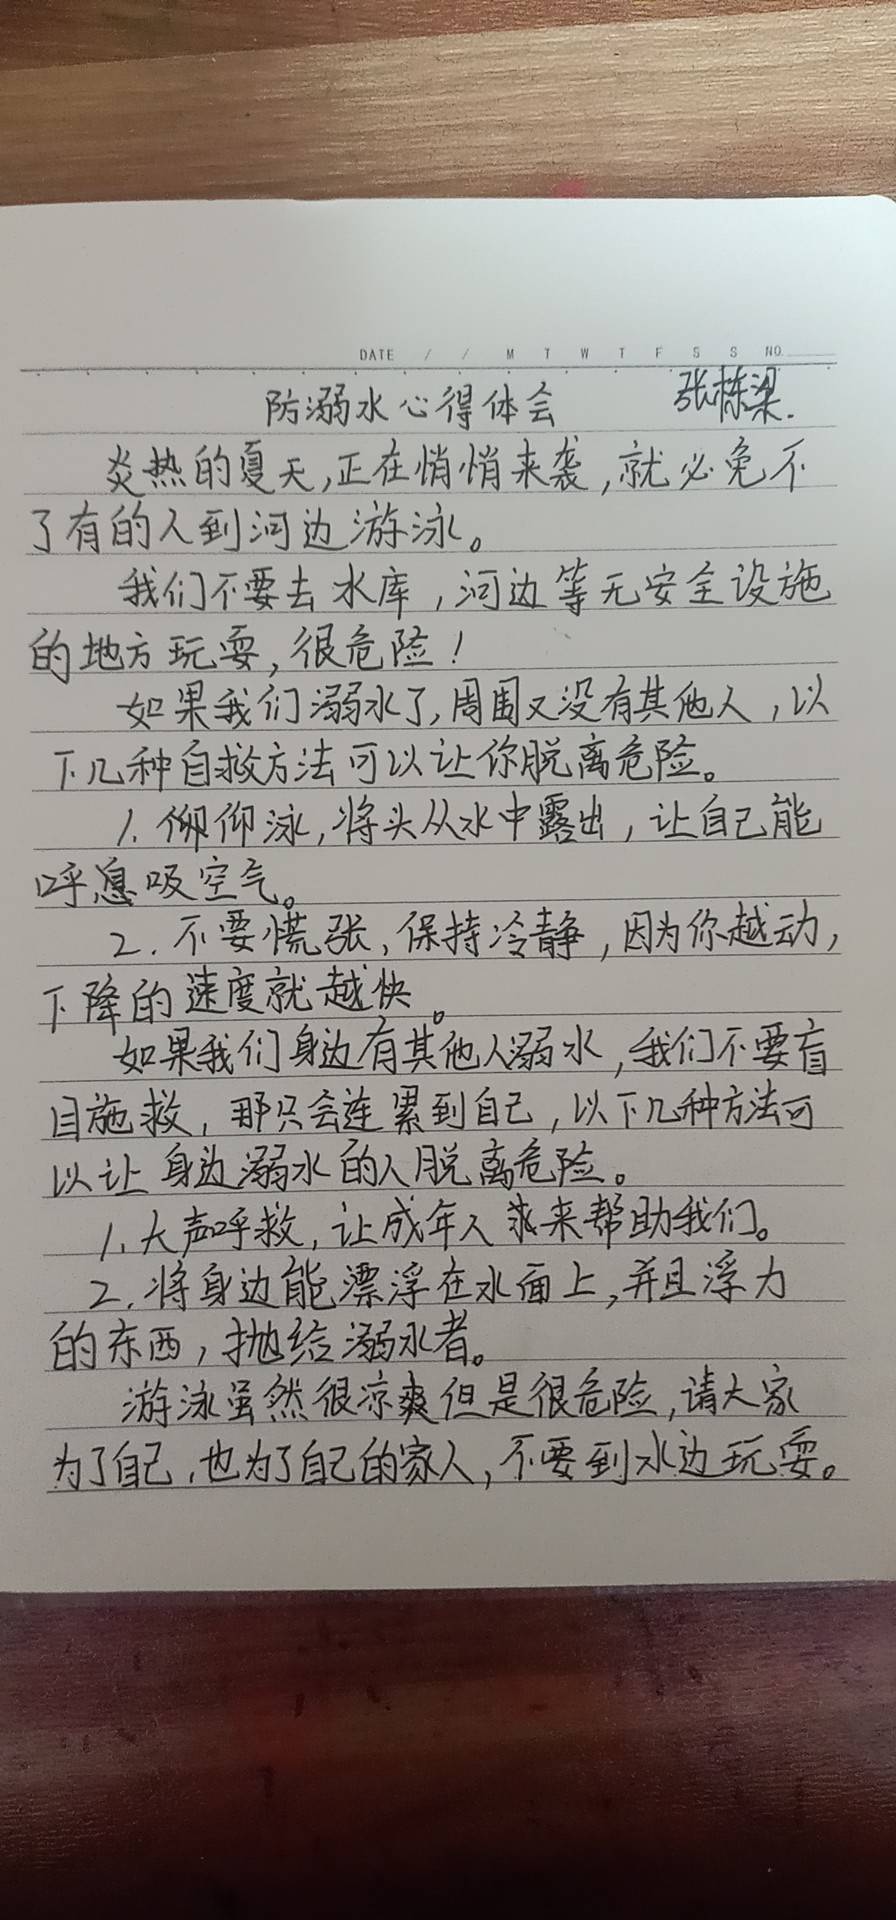 DATE / / M T W T F S S NO.
防溺水心得体会 张栋梁.
炎热的夏天,正在悄悄来袭,就必免不
了有的人到河边游泳。
我们不要去水库,河边等无安全设施
的地方玩耍,很危险!
如果我们溺水了,周围又没有其他人,以
下几种自救方法可以让你脱离危险。
1.仰仰泳,将头从水中露出,让自己能
呼息吸空气。
2.不要慌张,保持冷静,因为你越动,
下降的速度就越快。
如果我们身边有其他人溺水,我们不要盲
目施救,那只会连累到自己,以下几种方法可
以让身边溺水的人脱离危险。
1.大声呼救,让成年人来帮助我们。
2.将身边能漂浮在水面上,并且浮力
的东西,抛给溺水者。
游泳虽然很凉爽但是很危险,请大家
为了自己,也为了自己的家人,不要到水边玩耍。